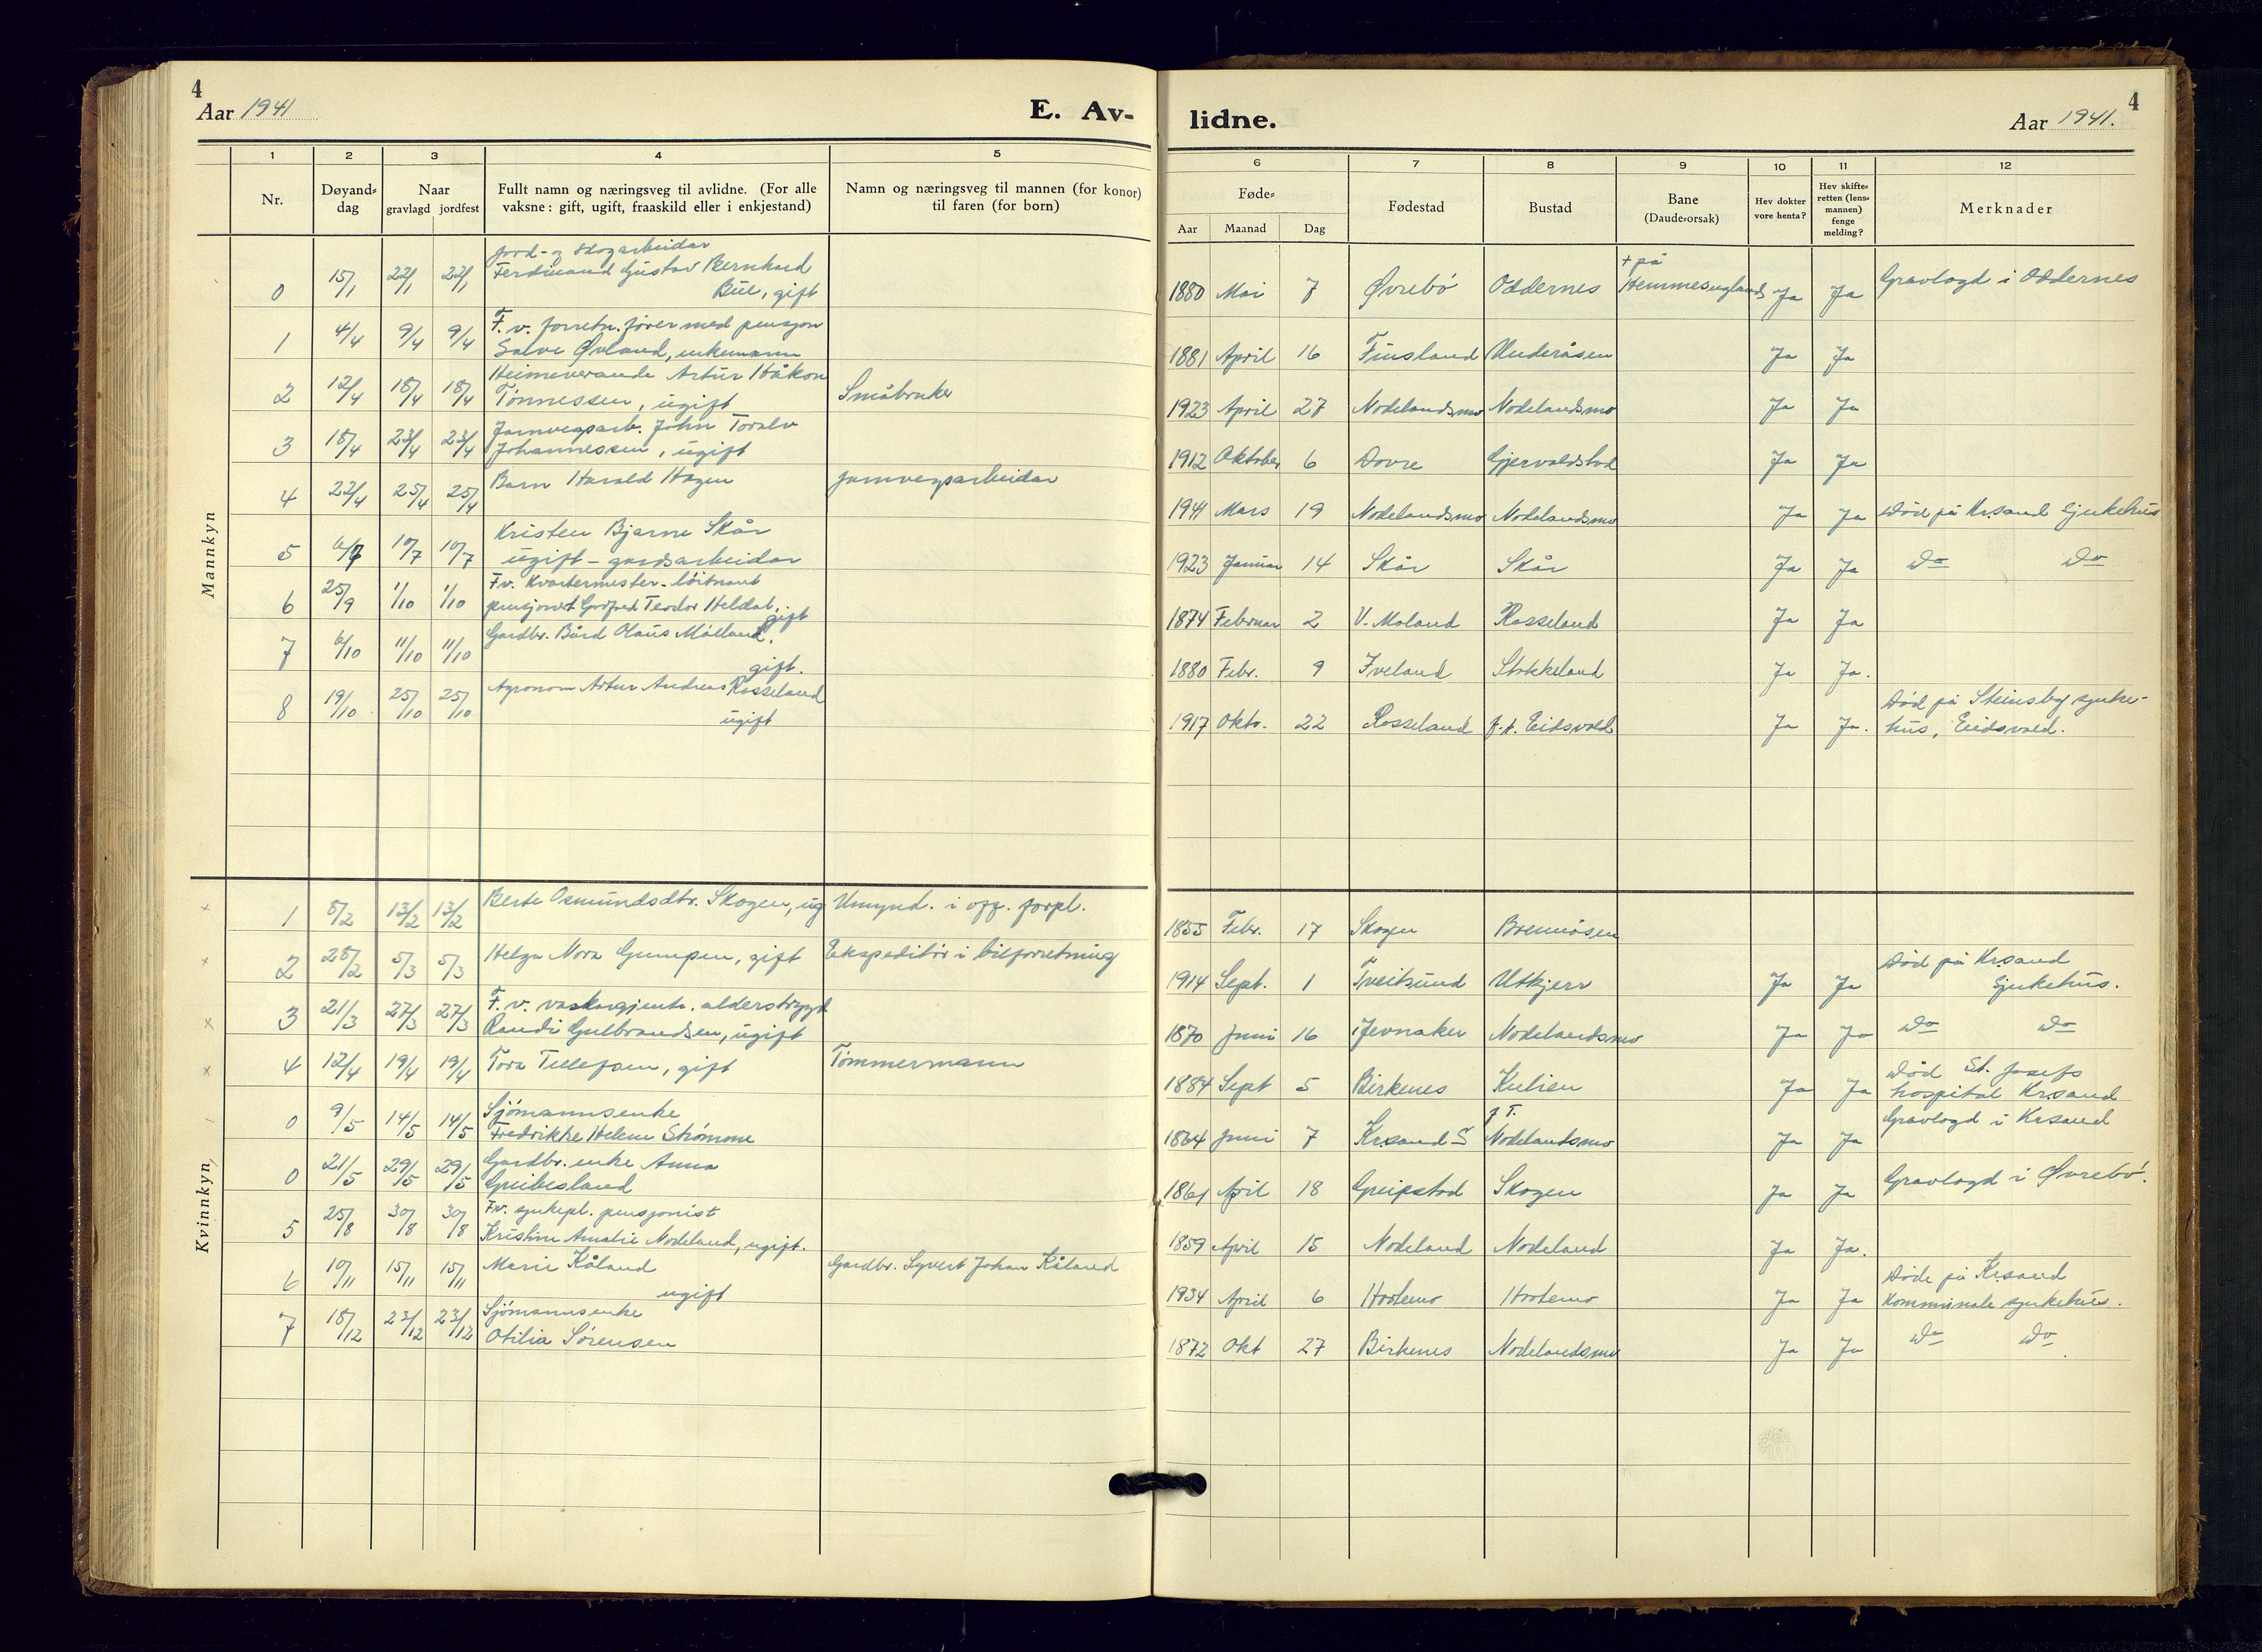 4
Aar 1941
E. Av-
1 2 3 4 5
Nr.
Døyand-
dag
Naar
gravlagd jordfest
Fullt namn og næringsveg til avlidne. (For alle
vaksne: gift, ugift, fraaskild eller i enkjestand)
Namn og næringsveg til mannen (for konor)
til faren (for born)
Mannkyn
jord- og skogarbeidar
0 15/1 22/1 22/1 Ferdinand Gustav Bernhard
Bue, gift
1 4/4 9/4 9/4 F. v. forretn.fører med pensjon
Salve Øvland, enkemann
2 12/4 18/4 18/4 Heimeverande Artur Håkon
Tønnessen, ugift Småbruker
3 18/4 23/4 23/4 Jarnvegsarb. John Toralv
Johannessen, ugift
4 22/4 25/4 25/4 Barn Harald Hagen jarnvegsarbeidar
5 6/7 10/7 10/7 Kristen Bjarne Skår
ugift - gardsarbeidar
6 25/9 1/10 1/10 F.v. Kvartermester-löitnant
pensjonist Teodor Heldal, gift
7 6/10 11/10 11/10 Gardbr. Bård Olaus Mölland.
gift.
8 19/10 25/10 25/10 Agronom Artur Andreas Rosseland
ugift
Kvinnkyn
x 1 8/2 13/2 13/2 Berte Osmundsdtr. Skogen, ug Umynd. i off. forpl.
x 2 28/2 5/3 5/3 Helga Nora Gumpen, gift Ekspeditör i bilforretning
x 3 21/3 27/3 27/3 F. v. vaskargjente. alderstrygd
Randi Gulbrandsen, ugift
x 4 12/4 19/4 19/4 Tora Tellefsen, gift Tömmermann
0 9/5 14/5 14/5 Sjömannsenke
Fredrikke Helene Strömme
0 21/5 29/5 29/5 Gardbr. enke Anna
Greibesland
5 25/8 30/8 30/8 F.v. sjukepl. pensjonist
Kristine Amalie Nodeland, ugift.
6 10/11 15/11 15/11 Marie Kåland Gardbr. Syvert Johan Kåland
ugift
7 18/12 23/12 23/12 Sjömannsenke
Otilia Sörensen
4
lidne.
Aar 1941.
6 7 8 9 10 11 12
Føde-
Aar Maanad Dag
Fødestad
Bustad
Bane
(Daude-orsak)
Hev dokter
vore henta?
Hev skifte-
retten (lens-
mannen)
fenge
melding?
Merknader
+ på
1880 Mai 7 Øvrebö Oddernes Ja Ja Gravlagd i Oddernes
1881 April 16 Finsland Underåsen Ja Ja
1923 April 27 Nodelandsmo Nodelandsmo Ja Ja
1912 Oktober 6 Dovre Gjervoldstad Ja Ja
1941 Mars 19 Nodelandsmo Nodelandsmo Ja Ja Död på Kr.sand Sjukehus
1923 Januar 14 Skår Skår Ja Ja Do Do
1874 Februar 2 V. Moland Rosseland Ja Ja
1880 Febr. 9 Iveland Stokkeland Ja Ja.
1917 Okto. 22 Rosseland f.t. Eidsvold Ja Ja. Död på Steinsby sjuke-
hus, Eidsvold.
1855 Febr. 17 Skogen Brennåsen
1914 Sept. 1 Tveitsund Utkjerr Ja Ja Död på Kr.sand
Sjukehus.
1870 Juni 16 Jevnaker Nodelandsmo Ja Ja Do Do
1884 Sept 5 Birkenes Kulien Ja Ja Död St. Josefs
hospital Kr.sand
1864 Juni 7 Kr.sand S f.T. Nodelandsmo Ja Ja Gravlagd i Kr.sand
1861 April 18 Greipstad Skogen Ja Ja Gravlagd i Øvrebö.
1859 April 15 Nodeland Nodeland Ja Ja.
1934 April 6 Hortemo Hortemo Ja Ja Döde på Kr.sand
Kommunale sjukehus.
1872 Okt 27 Birkenes Nodelandsmo Ja Ja Do Do